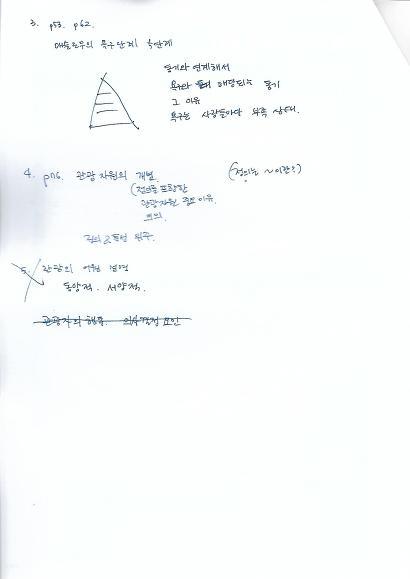 3. p53. p62.
매슬로우의 욕구단계 5단계
동기와 연계해서
욕구와 해당되는 동기
그 이유
욕구는 사람들마다 부족 상태.
4. p76. 관광자원의 개념. (정의는 ~이란?)
(정의를 포함한
관광자원 중요 이유.
정의 공통점 위주.
5. 관광의 어원 설명
동양적. 서양적.
관광자의 행동. 의사결정 요인